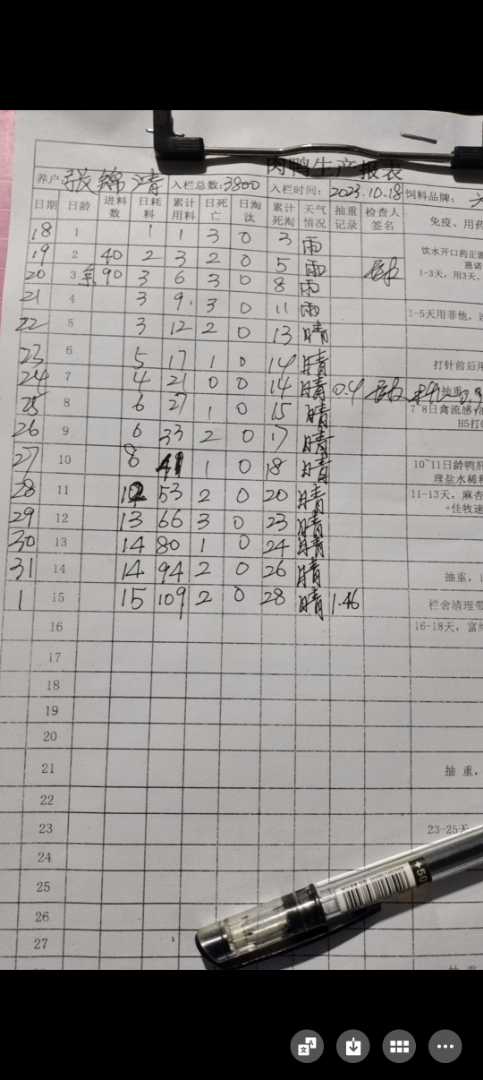 肉鸭生产报表
养户: 张锦清 入栏总数:3800 入栏时间: 2023.10.18 饲料品牌:
日期 日龄 进料数 日耗料 累计用料 日死亡 日淘汰 累计死淘 天气情况 抽重记录 检查人签名 免疫、用药
18 1 1 1 3 0 3 雨
19 2 40 2 3 2 0 5 雨 饮水开口药正
20 3 90 3 6 3 0 8 雨 1-3天, 用3天、
21 4 3 9 3 0 11 雨
22 5 3 12 2 0 13 晴 1-5天用菲他,
23 6 5 17 1 0 14 晴 打针前后用
24 7 4 21 0 0 14 晴 0.4 抽重
25 8 6 27 1 0 15 晴 7-8日禽流感 H5打
26 9 6 33 2 0 17 晴
27 10 8 41 1 0 18 晴 10~11日龄鸭肝
28 11 12 53 2 0 20 晴 11-13天, 麻杏
29 12 13 66 3 0 23 晴 +佳牧速
30 13 14 80 1 0 24 晴
31 14 14 94 2 0 26 晴 抽重,
1 15 15 109 2 0 28 晴 1.46 栏舍清理
16 16-18天,
17
18
19
20
21 抽 重,
22
23 23-25天
24
25
26
27